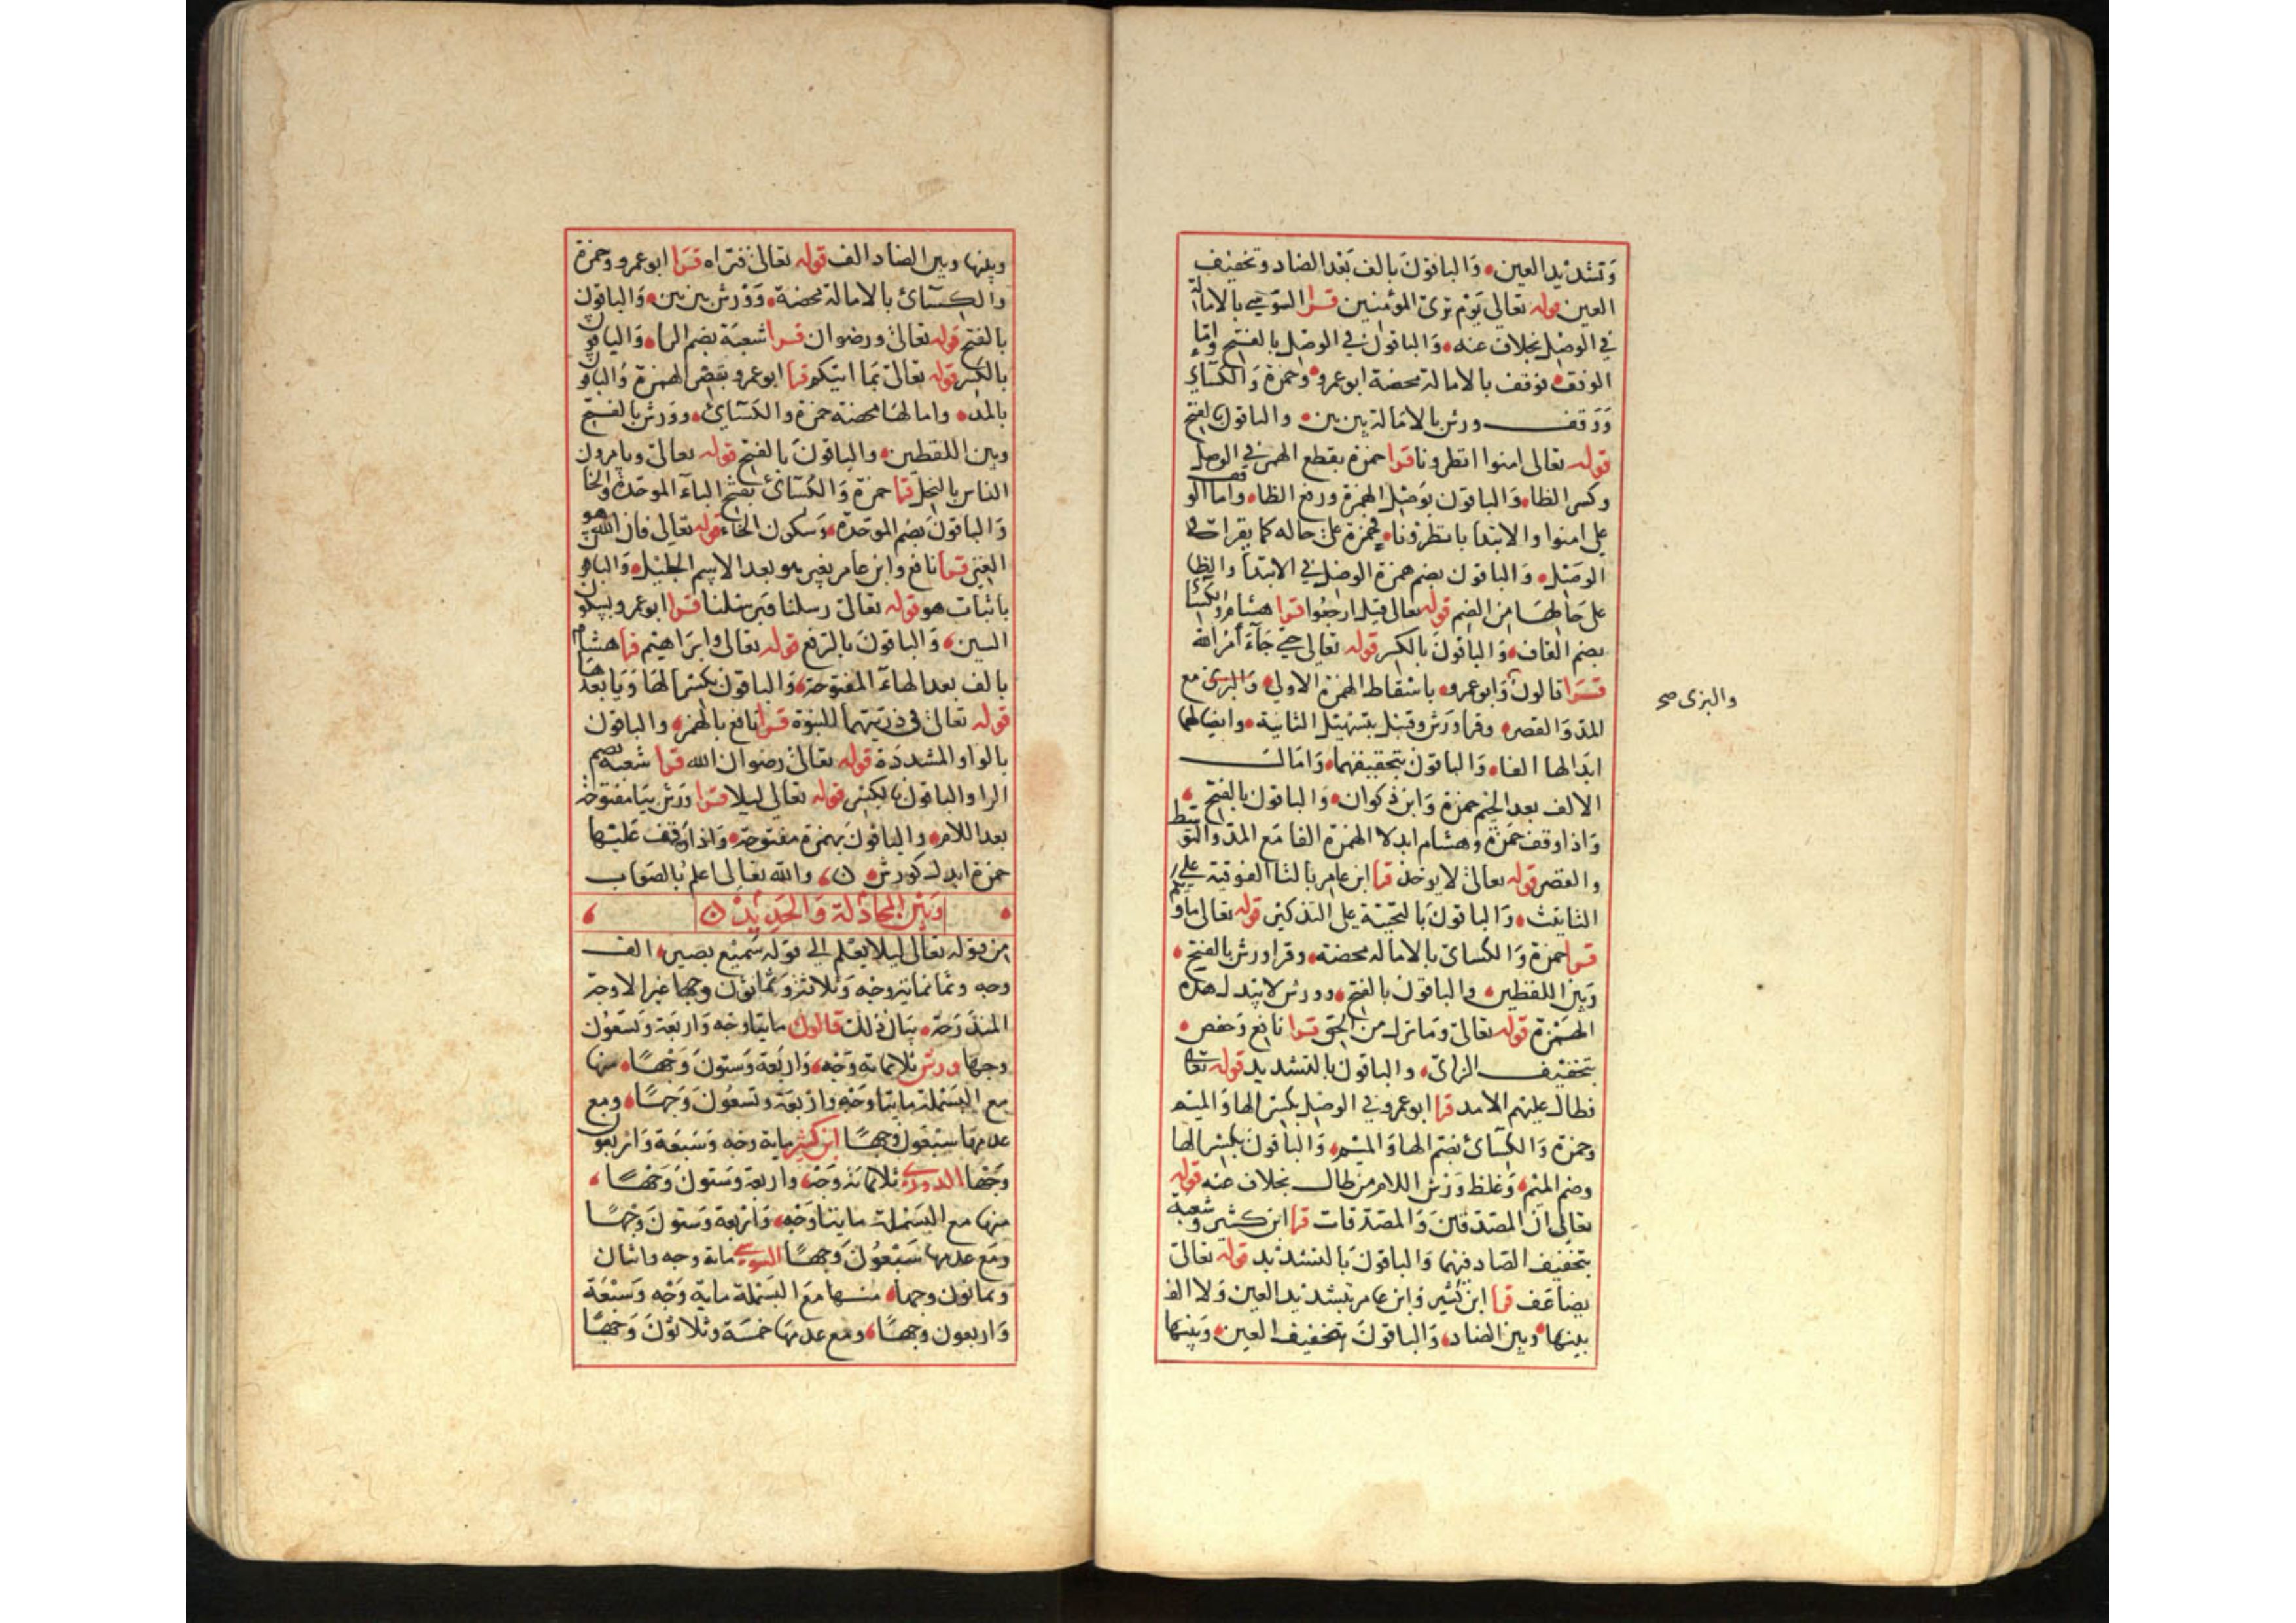 وتشديد العين والباقون بالف بعد الضاد وتخفيف
العين قوله تعالى يوم ترى المؤمنين قرا السوسي بالامالة
في الوصل بخلاف عنه والباقون في الوصل بالفتح واما
الوقف فوقف بالامالة محضة ابو عمرو وحمزة والكسائي
ووقف ورش بالامالة بين بين والباقون بالفتح
قوله تعالى امنوا انظرونا قرا حمزة بقطع الهمز في الوصل
وكسر الظا والباقون بوصل الهمزة ورفع الظا واما الوقف
على امنوا والابتدا بانظرونا فحمزة على حاله كما يقرا في
الوصل والباقون بضم همزة الوصل في الابتدا والظا
على حالها من الضم قوله تعالى قيل ارجعوا قرا هشام والكسائي
بضم القاف والباقون بالكسر قوله تعالى حتى جآء امر الله
قرا قالون وابو عمرو باسقاط الهمزة الاولى والبزى مع
والبزى صح
المد والقصر وقرا ورش وقنبل بتسهيل الثانية وايضا لهما
ابدالها الفا والباقون بتحقيقهما وامال
الالف بعد الجيم حمزة وابن ذكوان والباقون بالفتح
واذا وقف حمزة وهشام ابدلا الهمزة الفا مع المد والتوسط
والقصر قوله تعالى لا يوخذ قرا ابن عامر بالتا الفوقية على
التانيث والباقون بالتحتية على التذكير قوله تعالى ماوىكم
قرا حمزة والكسائى بالامالة محضة وقرا ورش بالفتح
وبين اللفظين والباقون بالفتح وورش لا يبدل هذه
الهمزة قوله تعالى وما نزل من الحق قرا نافع وحفص
بتخفيف الزاى والباقون بالتشديد قوله تعالى
فطال عليهم الامد قرا ابو عمرو في الوصل بكسر الها والميم
وحمزة والكسائى بضم الها والميم والباقون بكسر الها
وضم الميم وغلظ ورش اللام من طال بخلاف عنه قوله
تعالى ان المصدقين والمصدقات قرا ابن كثير وشعبة
بتخفيف الصاد فيهما والباقون بالتشديد قوله تعالى
يضاعف قرا ابن كثير وابن عامر بتشديد العين ولا الف
بينها وبين الضاد والباقون بتخفيف العين وبينها
وبينها وبين الضاد الف قوله تعالى فتراه قرا ابو عمرو وحمزة
والكسآئ بالامالة محضة وورش بين بين والباقون
بالفتح قوله تعالى ورضوان قرا شعبة بضم الرا والباقون
بالكسر قوله تعالى بما اتيكم قرا ابو عمرو بقصر الهمزة والباقون
بالمد وامالها محضة حمزة والكسآئ وورش بالفتح
وبين اللفظين والباقون بالفتح قوله تعالى ويامرون
الناس بالبخل قرا حمزة والكسآئ بفتح الباء الموحدة والخا
والباقون بضم الموحدة وسكون الخاء قوله تعالى فان الله هو
الغني قرا نافع وابن عامر بغير هو بعد الاسم الجليل والباقون
باثبات هو قوله تعالى رسلنا وبرسلنا قرا ابو عمرو بسكون
السين والباقون بالرفع قوله تعالى وابراهيم قرا هشام
بالف بعد الهاء المفتوحة والباقون بكسر الها ويا بعدها
قوله تعالى في ذريتهما النبوة قرا نافع بالهمز والباقون
بالواو المشددة قوله تعالى رضوان الله قرا شعبه بضم
الرا والباقون بالكسر قوله تعالى ليلا قرا ورش بيا مفتوحة
بعد اللام والباقون بهمزة مفتوحة واذا وقف عليها
حمزة ابدل كورش والله تعالى اعلم بالصواب
وبين المجادلة والحديد
من قوله تعالى ليلا يعلم الى قوله سميع بصير الف
وجه وثمانماية وجه وثلاثة وثمانون وجها غير الاوجه
المندرجة بيان ذلك قالون مايتا وجه واربعة وتسعون
وجها ورش ثلاثماية وجه واربعة وستون وجها منها
مع البسملة مايتا وجه واربعة وتسعون وجها ومع
عدمها سبعون وجها ابن كثير ماية وجه وسبعة واربعون
وجها الدورى ثلاثماية وجه واربعة وستون وجها
منها مع البسملة مايتا وجه واربعة وستون وجها
ومع عدمها سبعون وجها السوسي ماية وجه واثنان
وثمانون وجها منها مع البسملة ماية وجه وسبعة
واربعون وجها ومع عدمها خمسة وثلاثون وجها